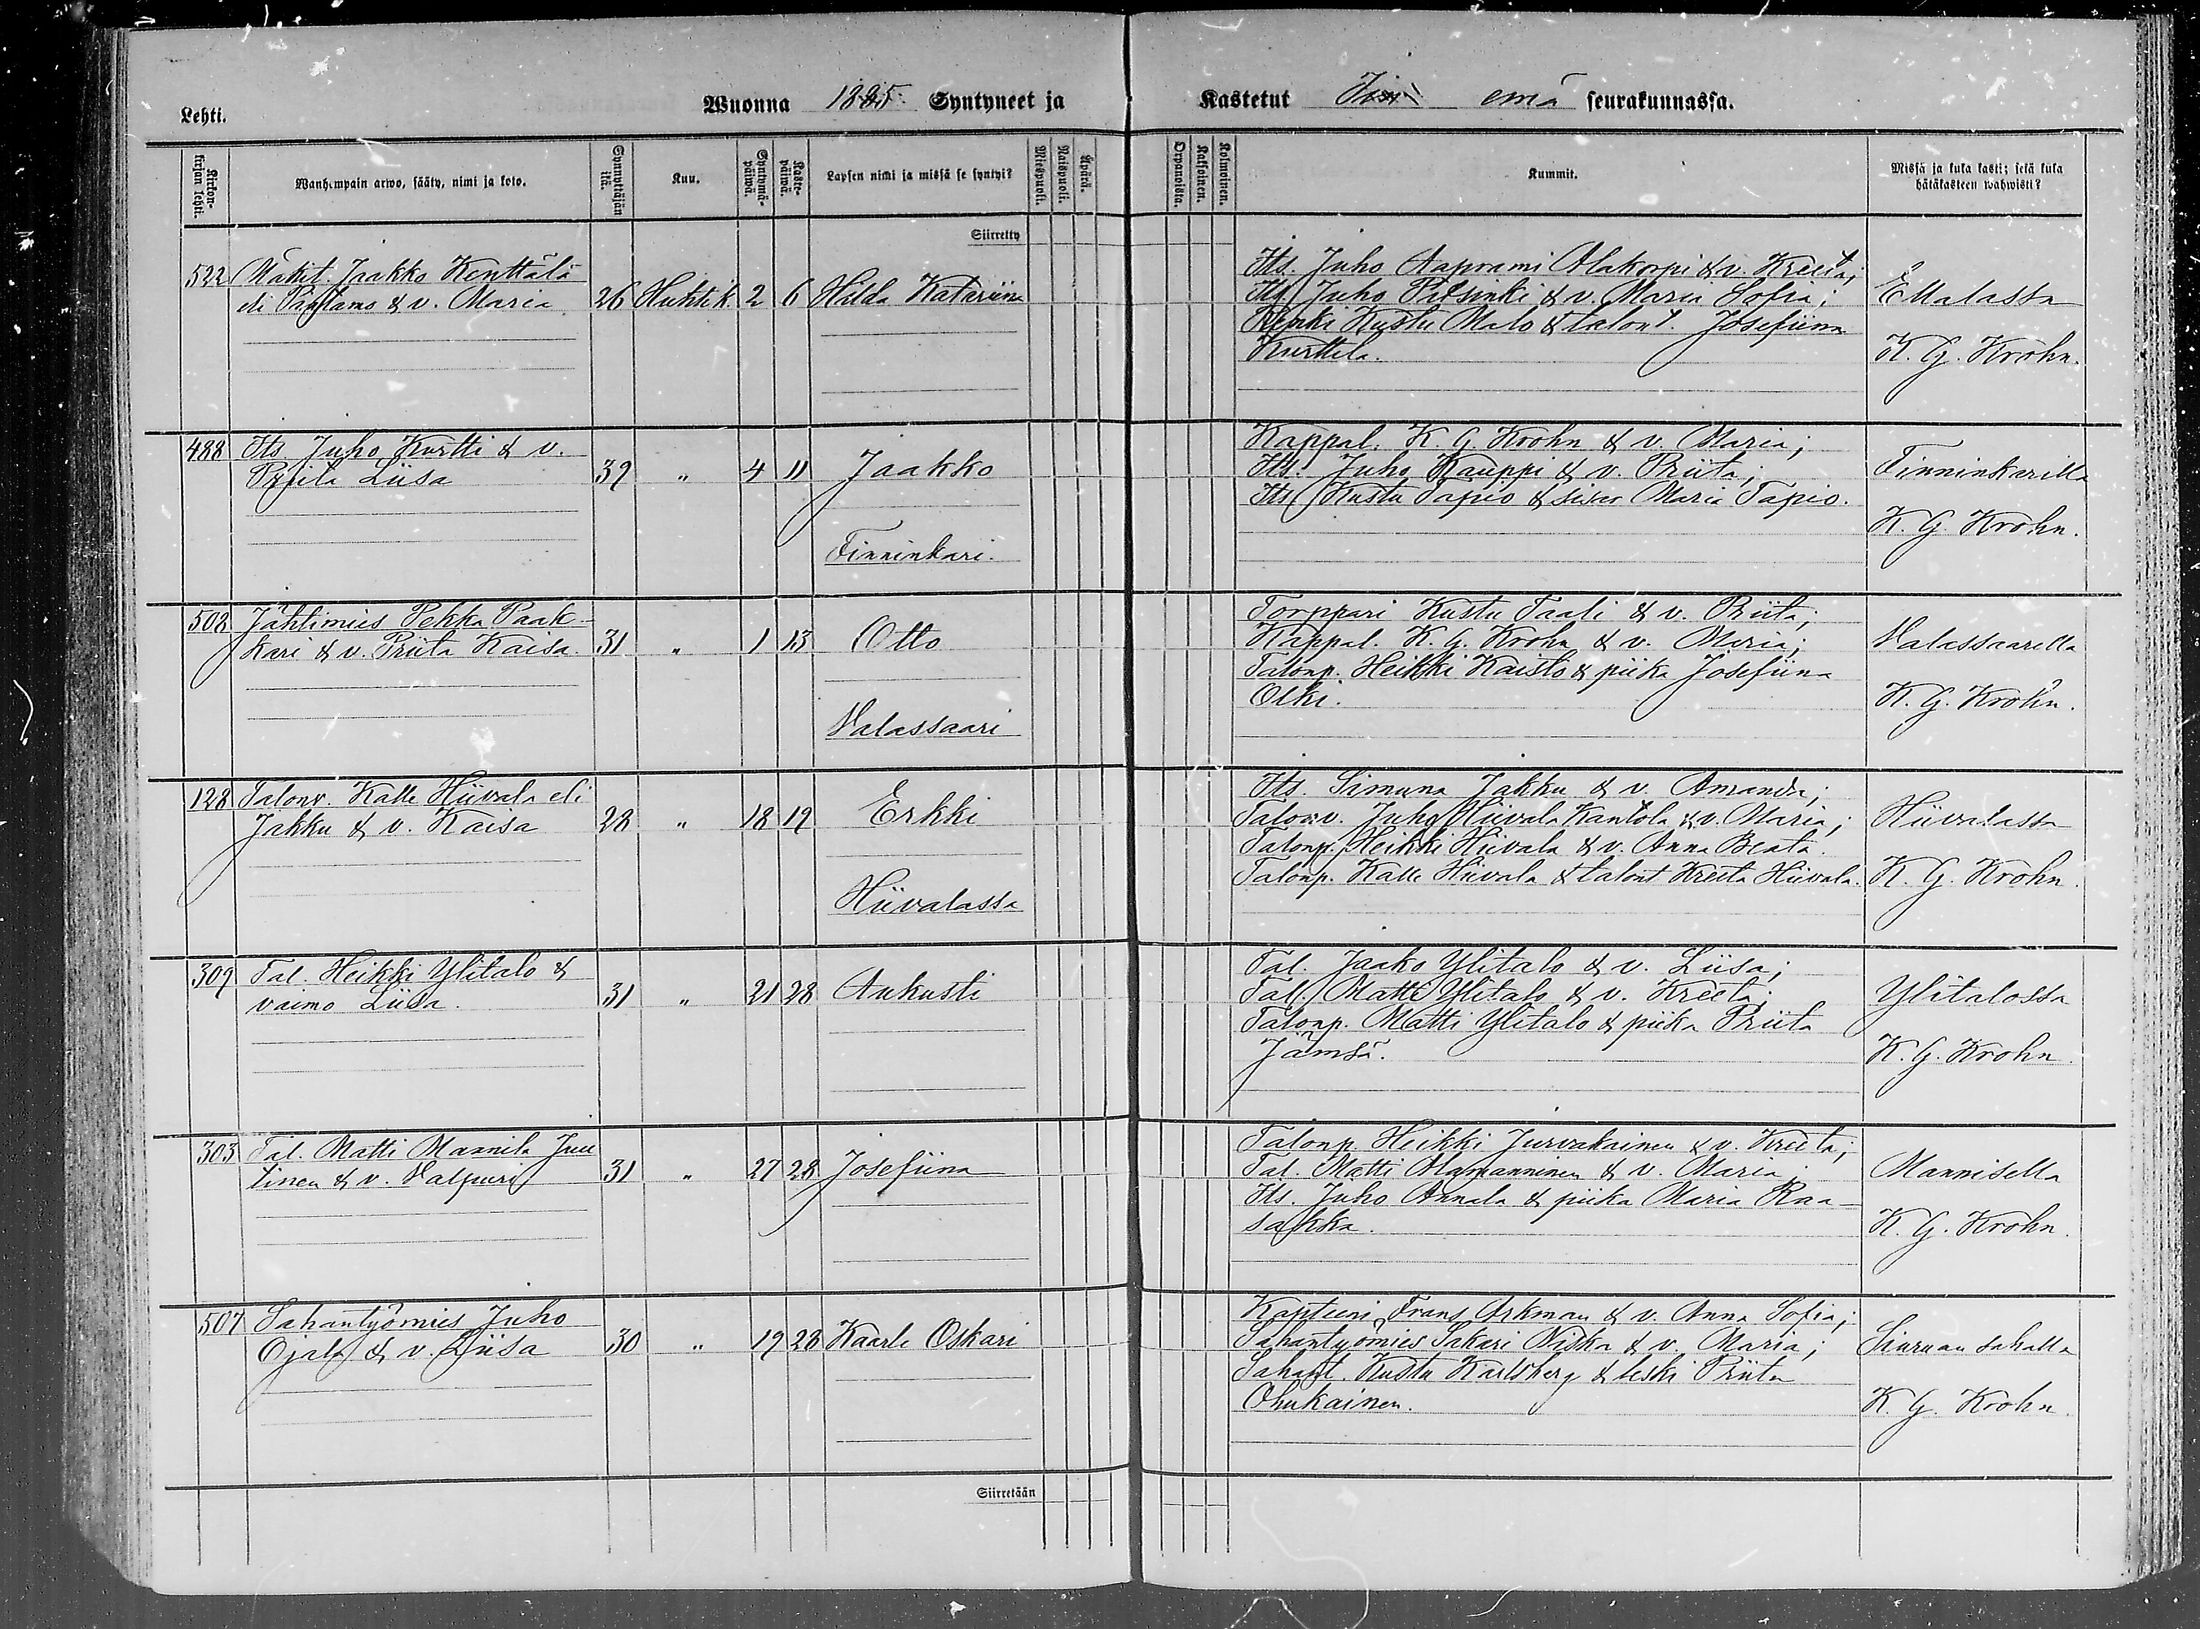 Lehti.
Wuonna 1885. Syntyneet ja
Kastetut Iin emä seurakunnassa.
Kirkon-
kirjan lehti.
Wanhempain arwo, sääty, nimi ja koto.
Synnyttäjän
ikä.
Kuu.
Syntymä-
päiwä.
Kaste-
päiwä.
Lapsen nimi ja missä se syntyi?
Miespuoli.
Naispuoli.
Äpärä.
Orpanoista.
Kaksoinen.
Kolmoinen.
Kummit.
Missä ja kuka kasti; sekä kuka
hätäkasteen wahwisti?
Siirretty
522 Mäkit. Jaakko Kenttälä
eli & v. Maria 26 Huhtik. 2 6 Hilda Katariina
Its. Juho Aaprami Alakorpi & v. Kreeta;
Its. Juho Pilsinki & v. Maria Sofia;
Renki Kustu Malo & talont. Josefiina
Kurttila.
Ellalassa
K. G. Krohn.
488 Its. Juho Kurtti & v.
Priita Liisa 39 " 4 11 Jaakko
Finninkari.
Kappal. K. G. Krohn & v. Maria;
Its. Juho Kauppi & v. Priita;
Its. Kustu Tapio & sisar Maria Tapio.
Finninkarilla
K. G. Krohn.
508 Jähtimies Pekka Paak-
kari & v. Priita Kaisa. 31 " 1 13 Otto
Halassaari
Torppari Kustu Taali & v. Priita;
Kappal. K. G. Krohn & v. Maria;
Talonp. Heikki Kaisto & piika Josefiina
Olki.
Halassaarella
K. G. Krohn.
128 Talonv. Kalle Hiivala eli
Jakku & v. Kaisa 28 " 18 19 Erkki
Hiivalassa
Its. Simuna Jakku & v. Amanda;
Talonv. Juho Hiivala Kantola & v. Maria;
Talonp. Heikki Hiivala & v. Anna Beata.
Talonp. Kalle Hiivala & talont Kreeta Hiivala.
Hiivalassa
K. G. Krohn.
309 Tal. Heikki Ylitalo &
vaimo Liisa. 31 " 21 28 Aukusti
Tal. Jaako Ylitalo & v. Liisa;
Tal. Matti Ylitalo & v. Kreeta;
Talonp. Matti Ylitalo & piika Priita
Jämsä.
Ylitalossa
K. G. Krohn.
303 Tal. Matti Mannila Juu
tinen & v. Valpuri 31 " 27 28 Josefiina
Talonp. Heikki Jurvakainen & v. Kreeta;
Tal. Matti Alamanninen & v. Maria;
Its. Juho Annala & piika Maria Raa-
sakka.
Mannisella
K. G. Krohn.
507 Sahantyömies Juho
Ojala & v. Liisa 30 " 19 28 Kaarle Oskari
Kapteeni Frans Arkman & v. Anna Sofia;
Sahantyömies Sakari Niska & v. Maria;
Sahant. Kustu Karlsberg & leski Priita
Ohukainen.
Siuruan sahalla
K. G. Krohn.
Siirretään